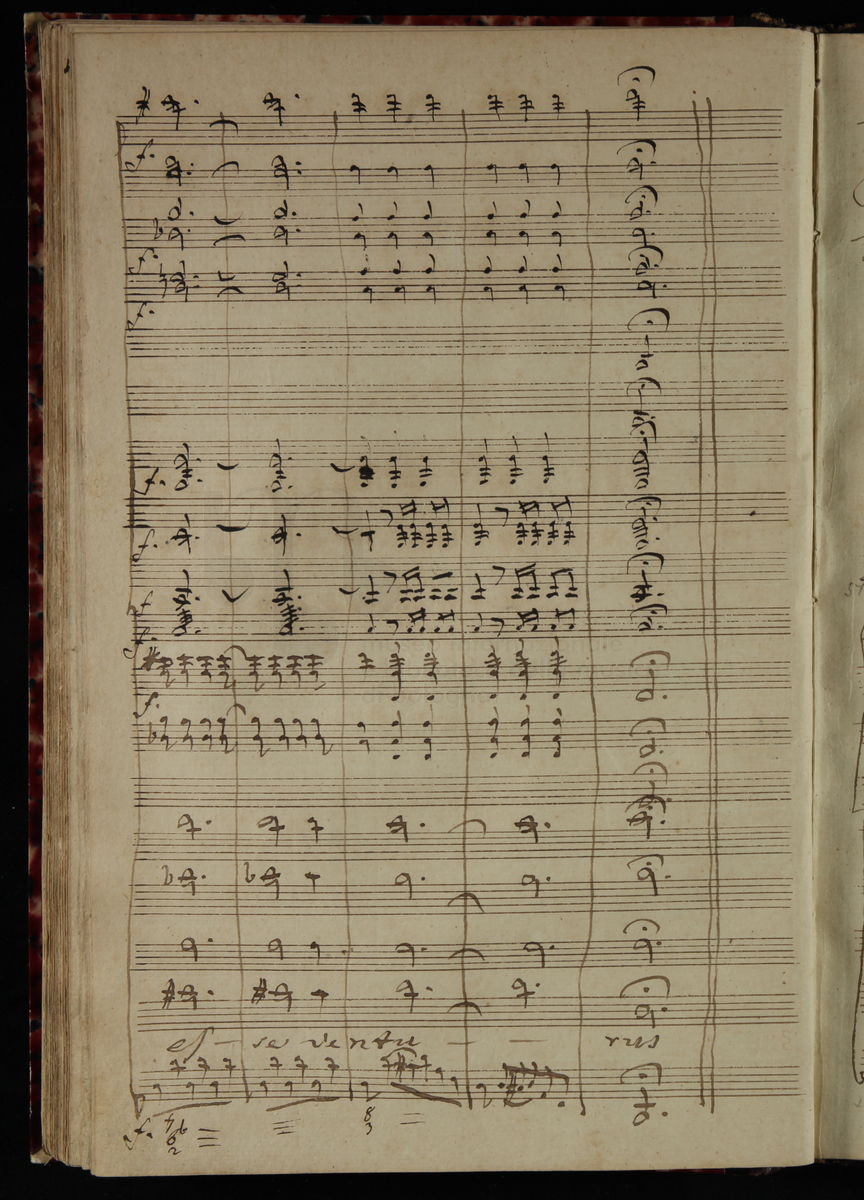 f.
f.
f.
f.
f.
f.
f.
f.
es - se ventu - - rus
f.
8
3